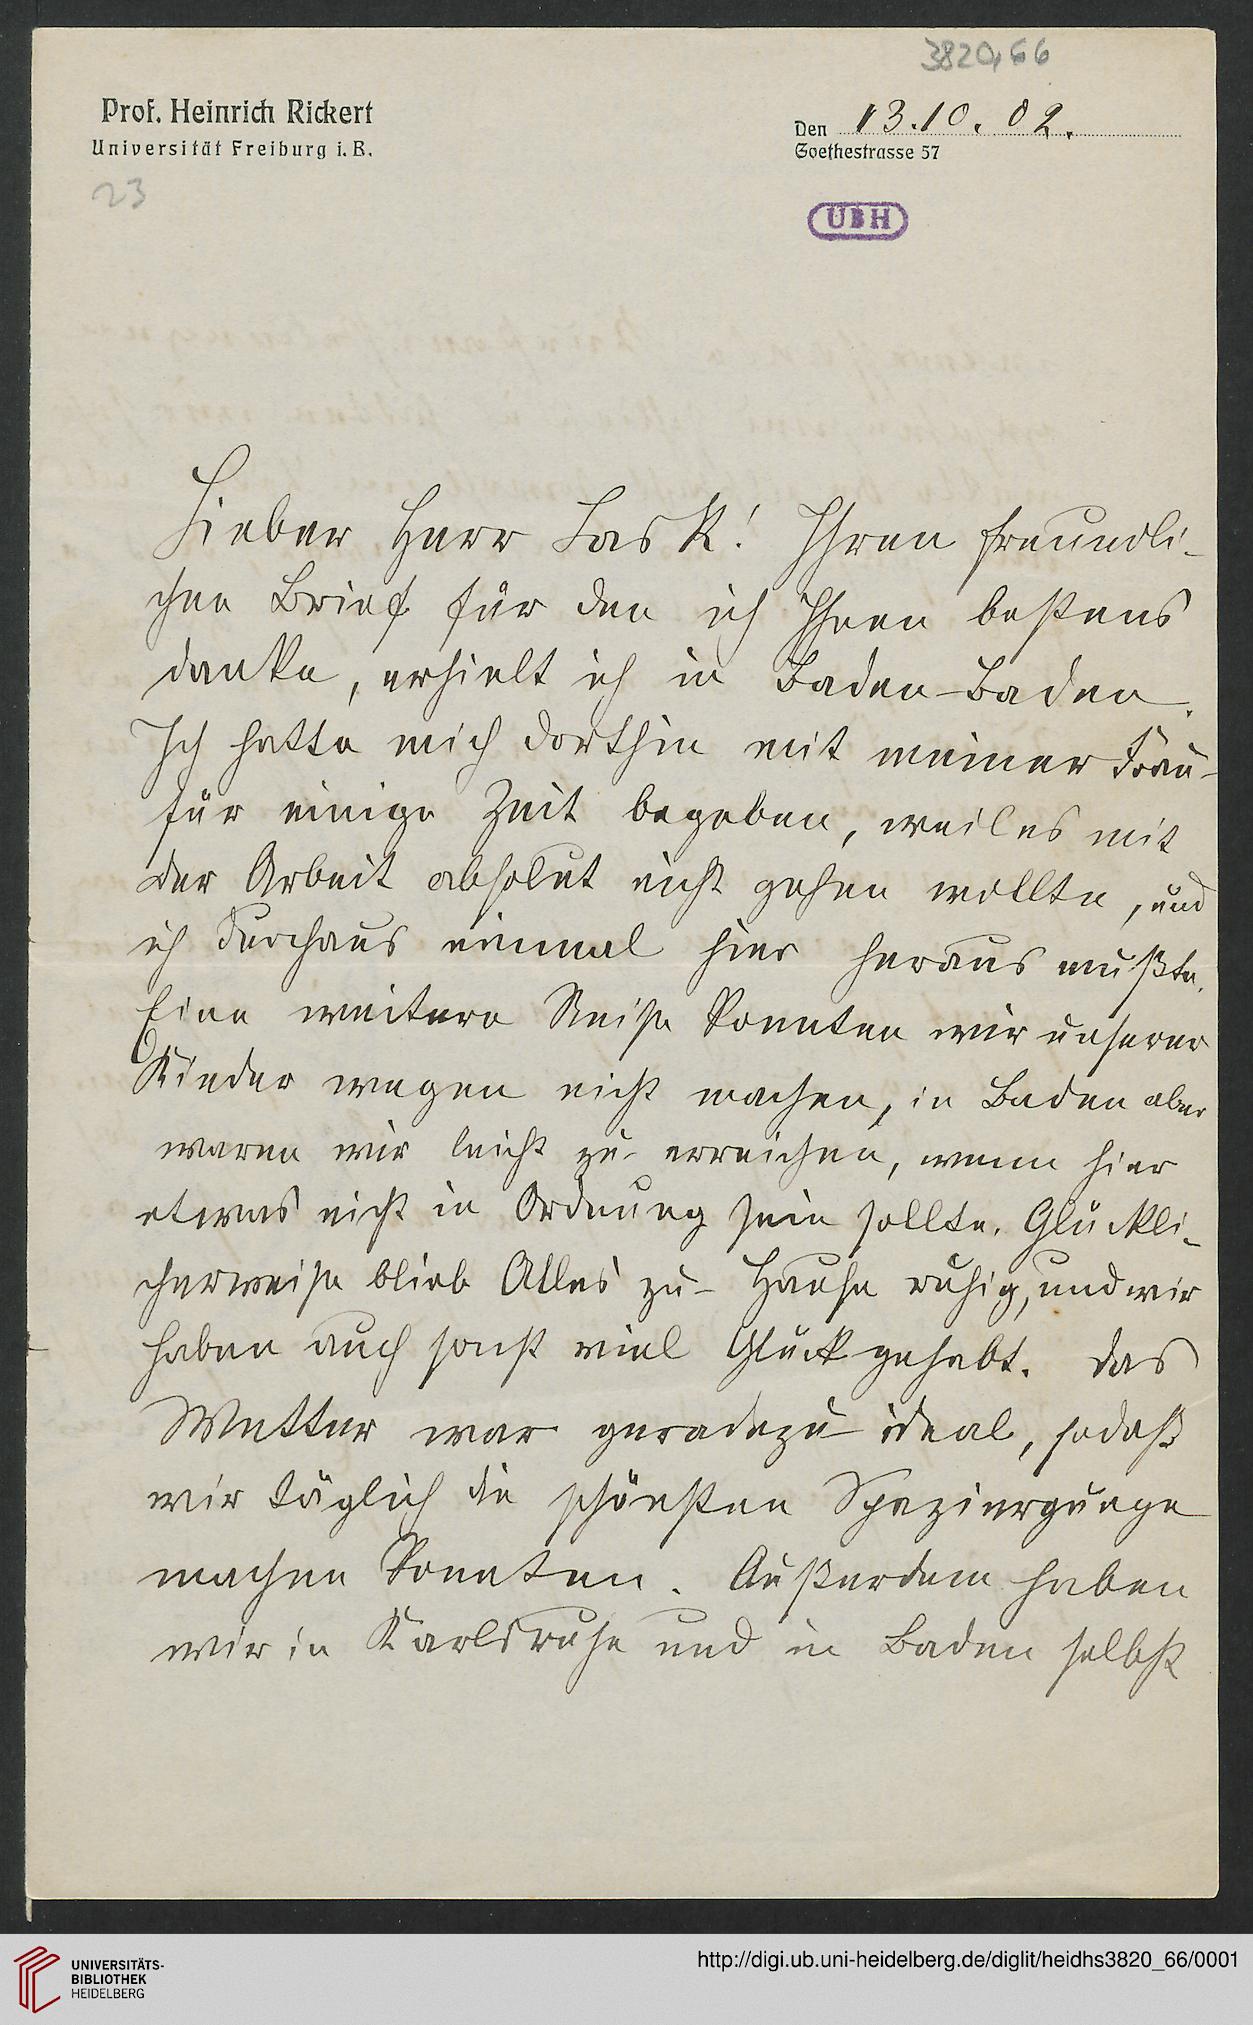 3820,66
Prof. Heinrich Rickert
Universität Freiburg i. B.
Den 13.10.02.
Goethestrasse 57
23
UBH
Lieber Herr Lask! Ihren freundli-
chen Brief für den ich Ihnen bestens
danke, erhielt ich in Baden-Baden.
Ich hatte mich dorthin mit meiner Frau
für einige Zeit begeben, weil es mit
der Arbeit absolut nicht gehen wollte, und
ich durchaus einmal hier heraus mußte.
Eine weitere Reise konnten wir unserer
Kinder wegen nicht machen, in Baden aber
waren wir leicht zu erreichen, wenn hier
etwas nicht in Ordnung sein sollte. Glückli-
cherweise blieb Alles zu Hause ruhig, und wir
haben auch sonst viel Glück gehabt. Das
Wetter war geradezu ideal, sodaß
wir täglich die schönsten Spaziergänge
machen konnten. Außerdem haben
wir in Karlsruhe und in Baden selbst
UNIVERSITÄTS-
BIBLIOTHEK
HEIDELBERG
http://digi.ub.uni-heidelberg.de/diglit/heidhs3820_66/0001